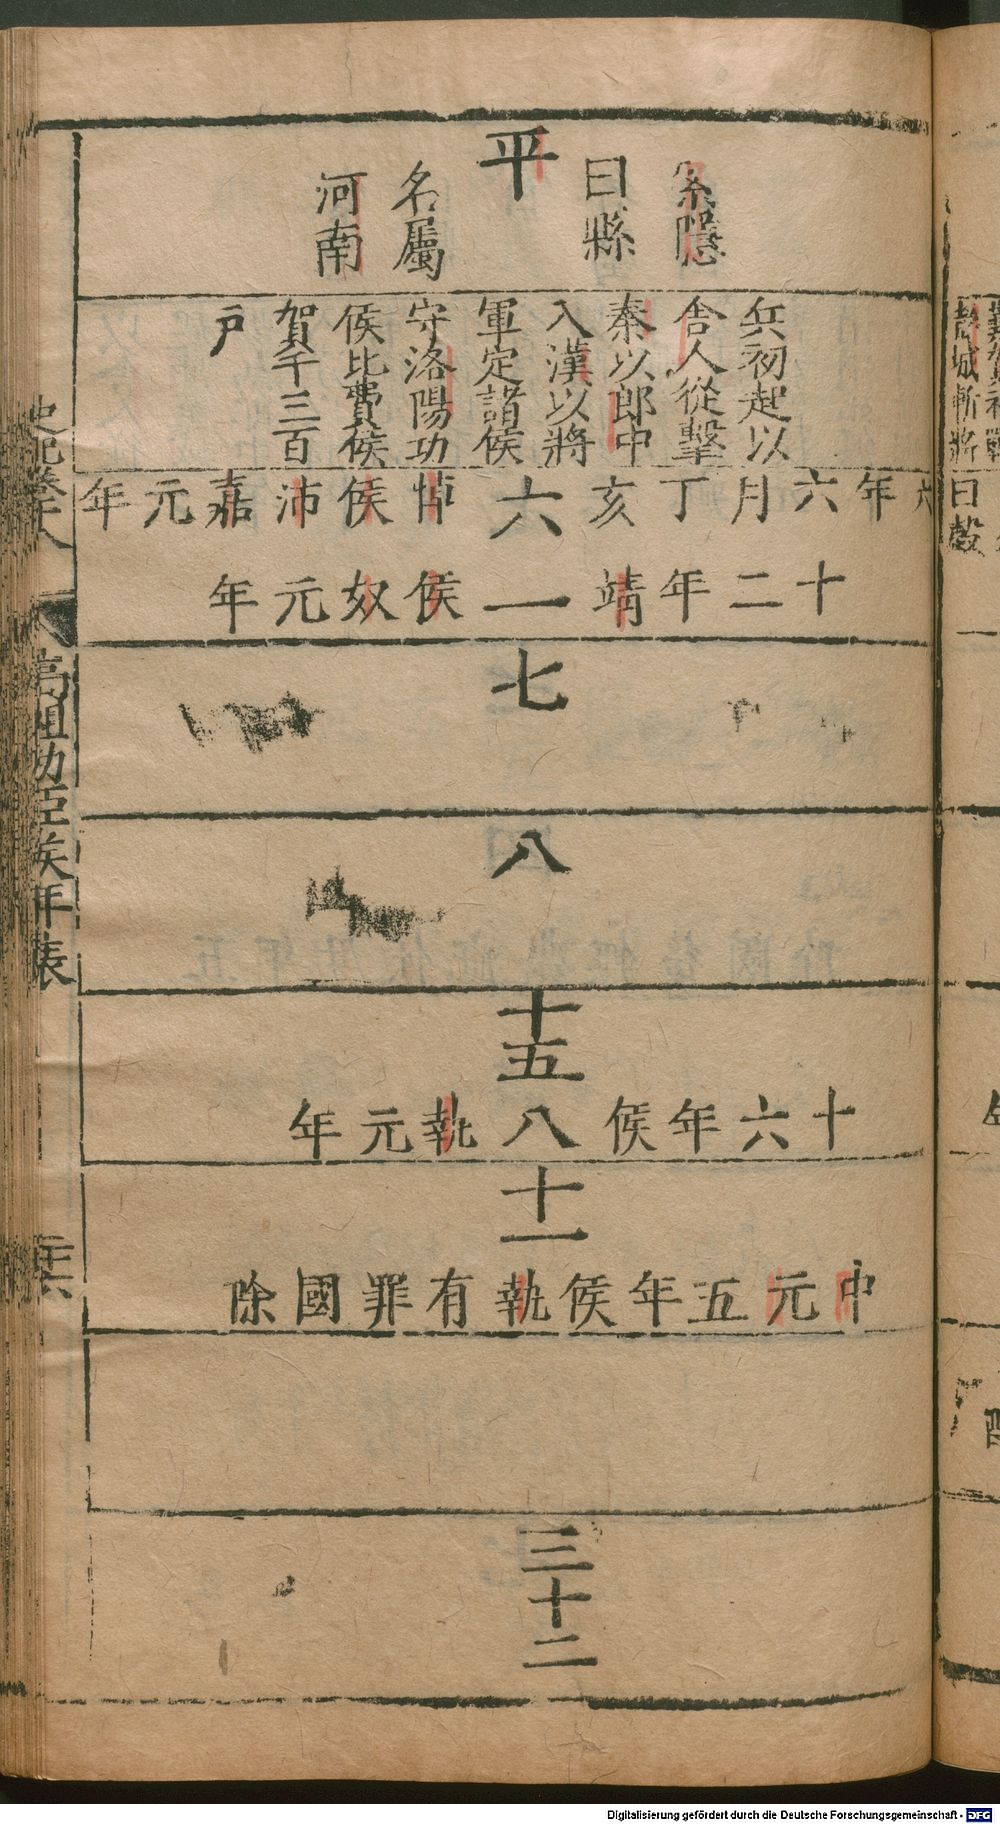 索隱
曰縣
平
名屬
河南
兵初起以
舍人從擊
秦以郎中
入漢以將
軍定諸侯
守洛陽功
侯比費侯
賀千三百
戶
六年六月丁亥
六
悼侯沛嘉元年
十二年靖
一
侯奴元年
七
八
十五
十六年侯
八
執元年
十一
中元五年侯執有罪國除
三十二
史記卷十八
高祖功臣侯年表
城斬將
Digitalisierung gefördert durch die Deutsche Forschungsgemeinschaft - DFG